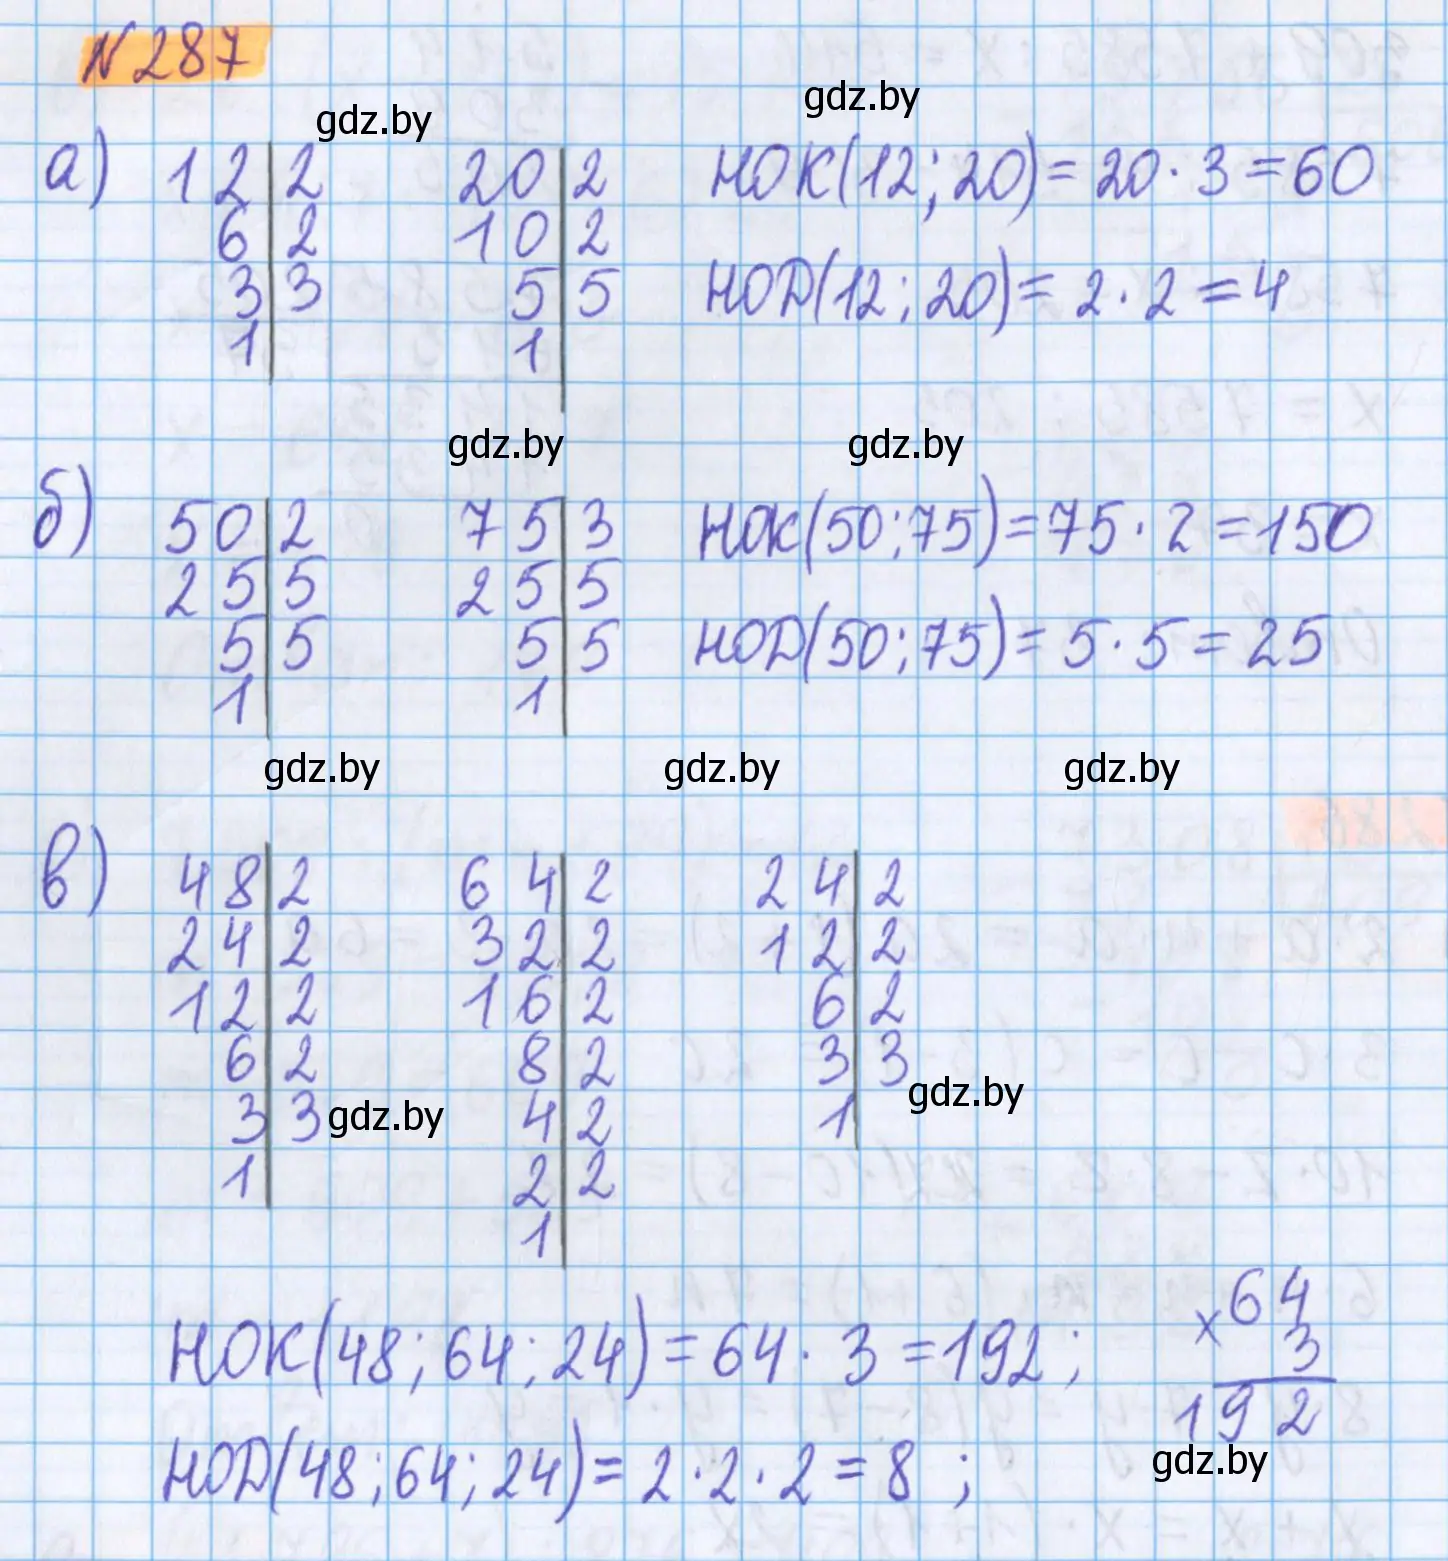 N 287
gdz.by gdz.by
а) 12 | 2 20 | 2 НОК(12; 20) = 20 · 3 = 60
6 | 2 10 | 2
3 | 3 5 | 5 НОД(12; 20) = 2 · 2 = 4
1 | 1 |
gdz.by gdz.by
б) 50 | 2 75 | 3 НОК(50; 75) = 75 · 2 = 150
25 | 5 25 | 5
5 | 5 5 | 5 НОД(50; 75) = 5 · 5 = 25
1 | 1 |
gdz.by gdz.by gdz.by
в) 48 | 2 64 | 2 24 | 2
24 | 2 32 | 2 12 | 2
12 | 2 16 | 2 6 | 2
6 | 2 8 | 2 3 | 3
3 | 3 4 | 2 1 |
gdz.by gdz.by
1 | 2 | 2
1 |
НОК(48; 64; 24) = 64 · 3 = 192;
× 64
3
192
gdz.by
НОД(48; 64; 24) = 2 · 2 · 2 = 8 ;